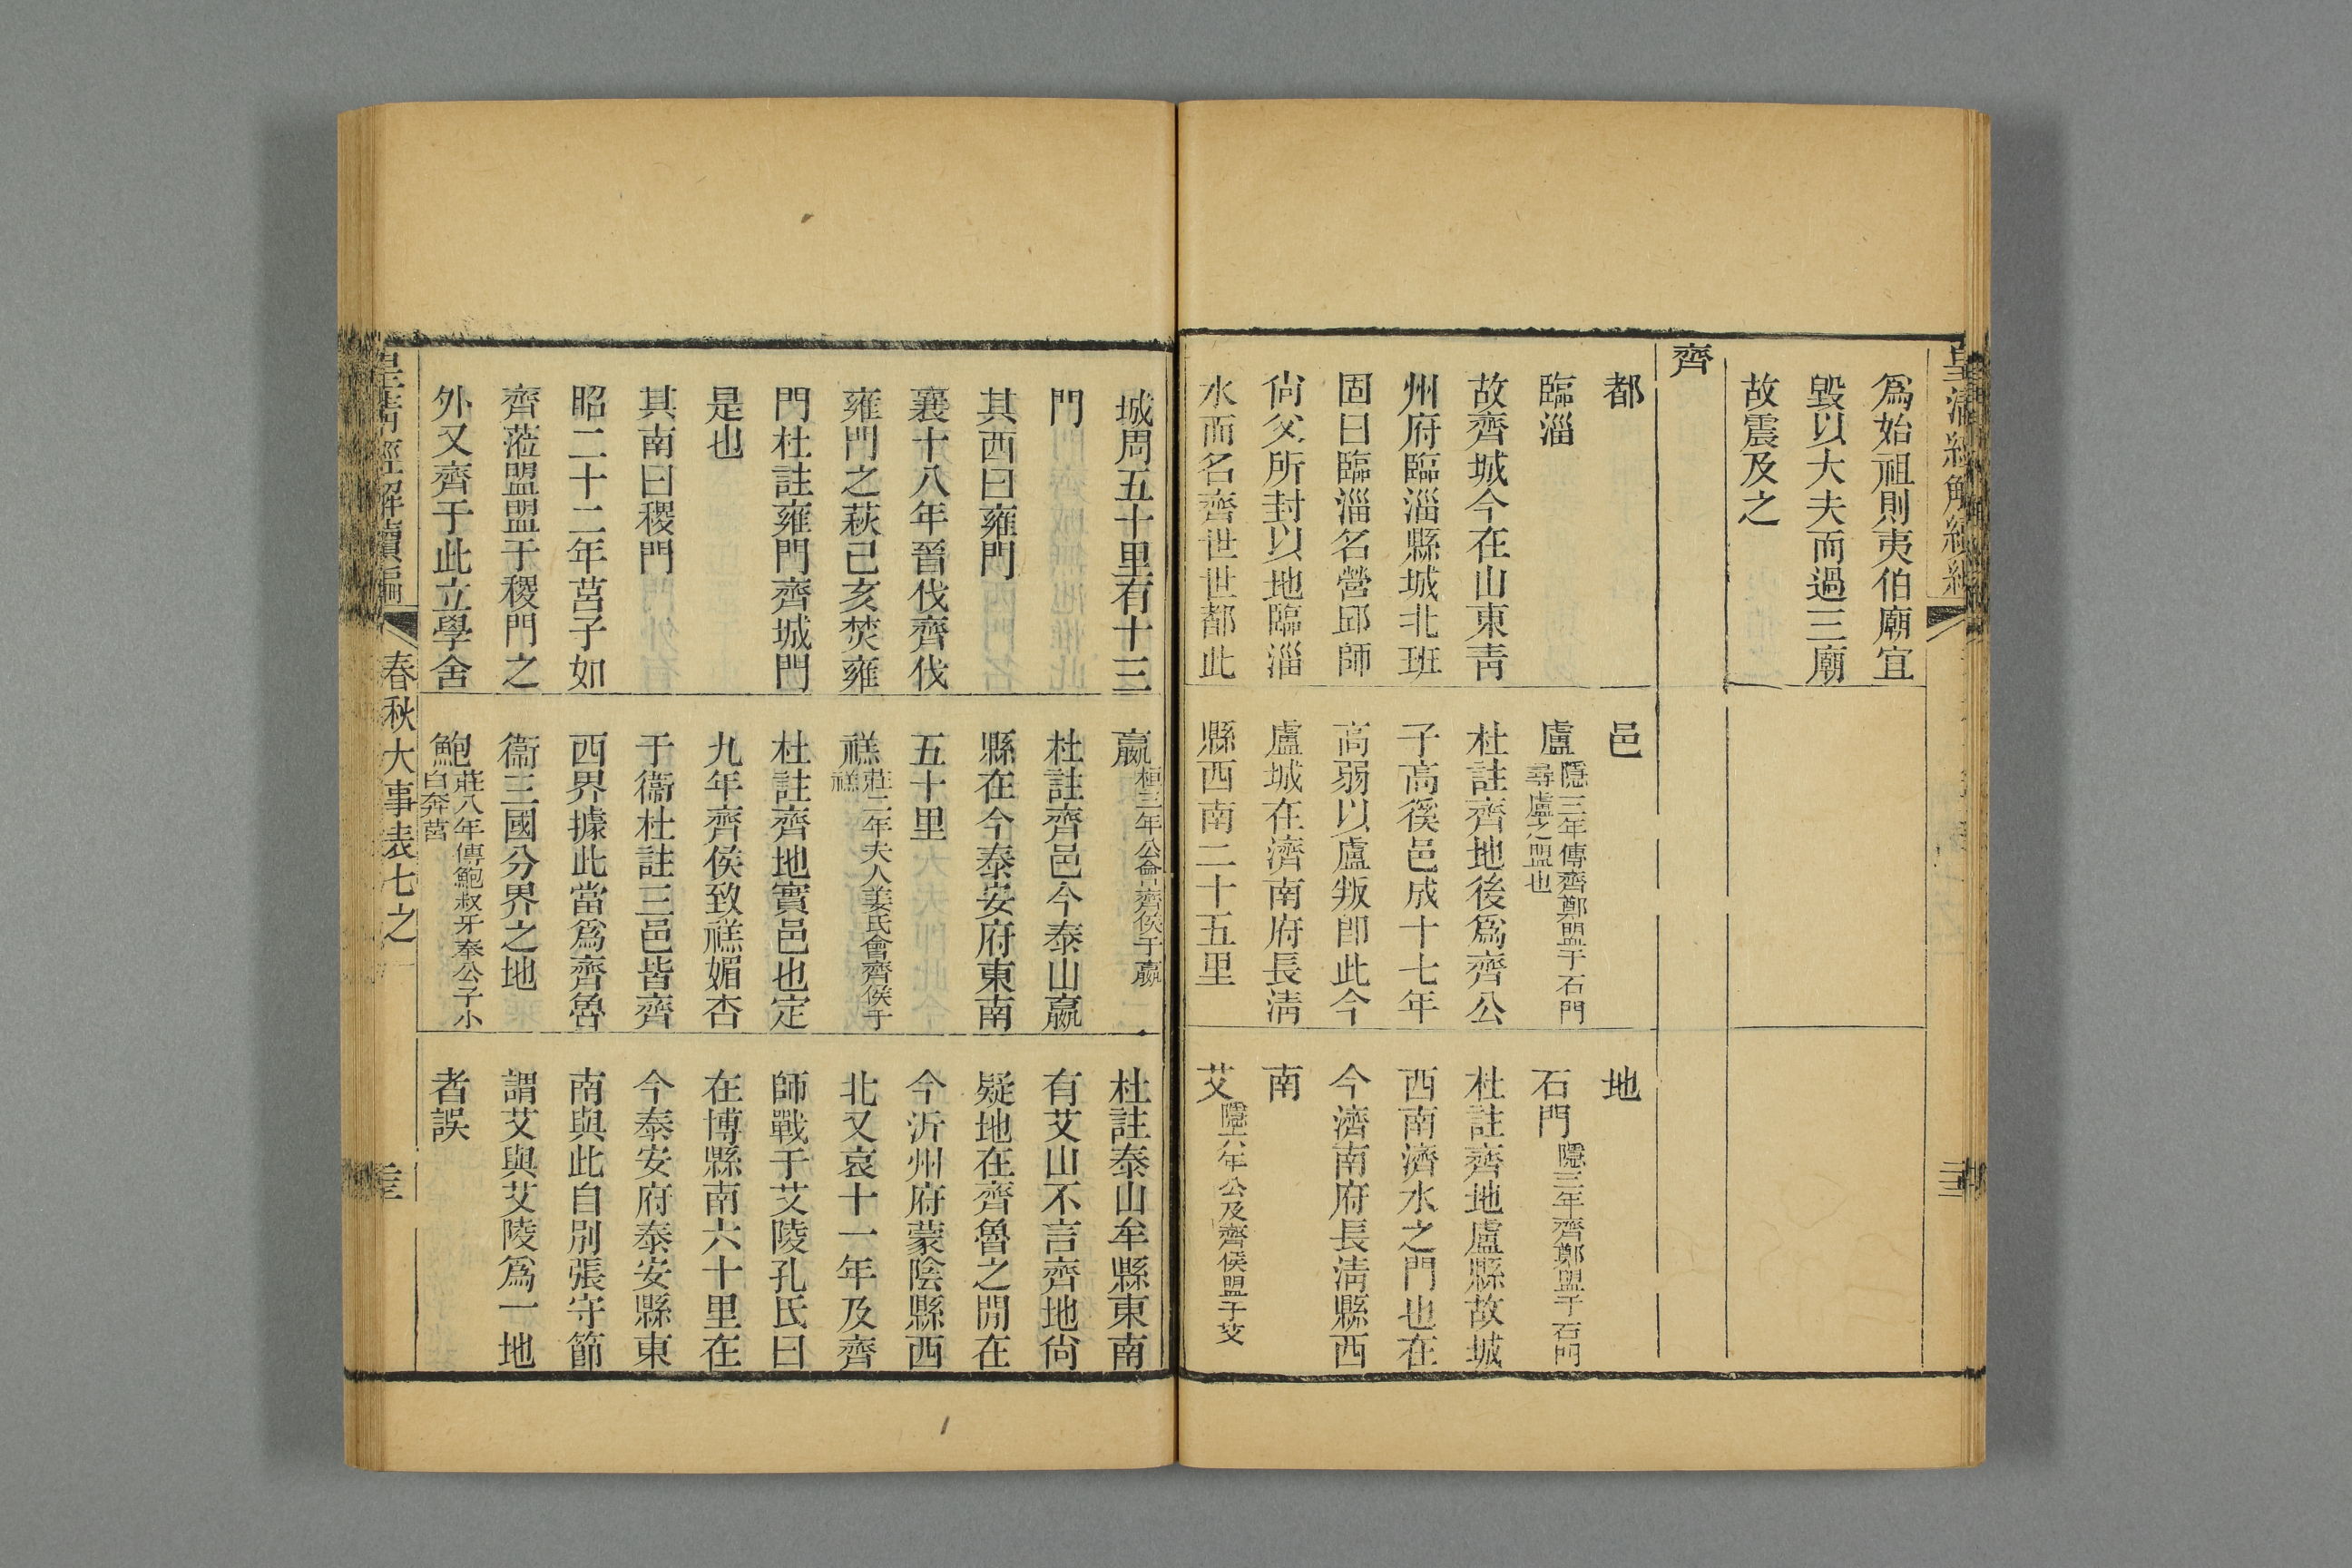 爲始祖則夷伯廟宜
毀以大夫而過三廟
故震及之
齊
都
臨淄
故齊城今在山東青
州府臨淄縣城北班
固曰臨淄名營邱師
尙父所封以地臨淄
水而名齊世世都此
邑
盧隱三年傳齊鄭盟于石門
尋盧之盟也
杜註齊地後爲齊公
子高徯邑成十七年
高弱以盧叛卽此今
盧城在濟南府長淸
縣西南二十五里
地
石門隱三年齊鄭盟于石門
杜註齊地盧縣故城
西南濟水之門也在
今濟南府長淸縣西
南
艾隱六年公及齊侯盟于艾
城周五十里有十三
門
其西曰雍門
襄十八年晉伐齊伐
雍門之萩己亥焚雍
門杜註雍門齊城門
是也
其南曰稷門
昭二十二年莒子如
齊蒞盟盟于稷門之
外又齊于此立學舍
嬴桓三年公會齊侯于嬴
杜註齊邑今泰山嬴
縣在今泰安府東南
五十里
禚莊二年夫人姜氏會齊侯于
禚
杜註齊地實邑也定
九年齊侯致禚媚杏
于衞杜註三邑皆齊
西界據此當爲齊魯
衞三國分界之地
鮑莊八年傳鮑叔牙奉公子小
白奔莒
杜註泰山牟縣東南
有艾山不言齊地尙
疑地在齊魯之閒在
今沂州府蒙陰縣西
北又哀十一年及齊
師戰于艾陵孔氏曰
在博縣南六十里在
今泰安府泰安縣東
南與此自別張守節
謂艾與艾陵爲一地
者誤
皇淸經解續編
春秋大事表七之一